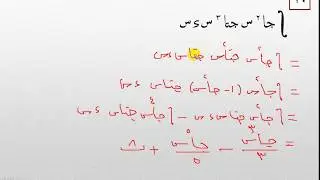 ∫ جا² س جتا³ س ء س
= ∫ جا²س جتا²س جتاس ءس
= ∫ جا²س (١ - جا²س) جتاس ءس
= ∫ جا²س جتاس ءس - ∫ جا⁴س جتاس ءس
= جا³س/٣ - جا⁵س/٥ + ث